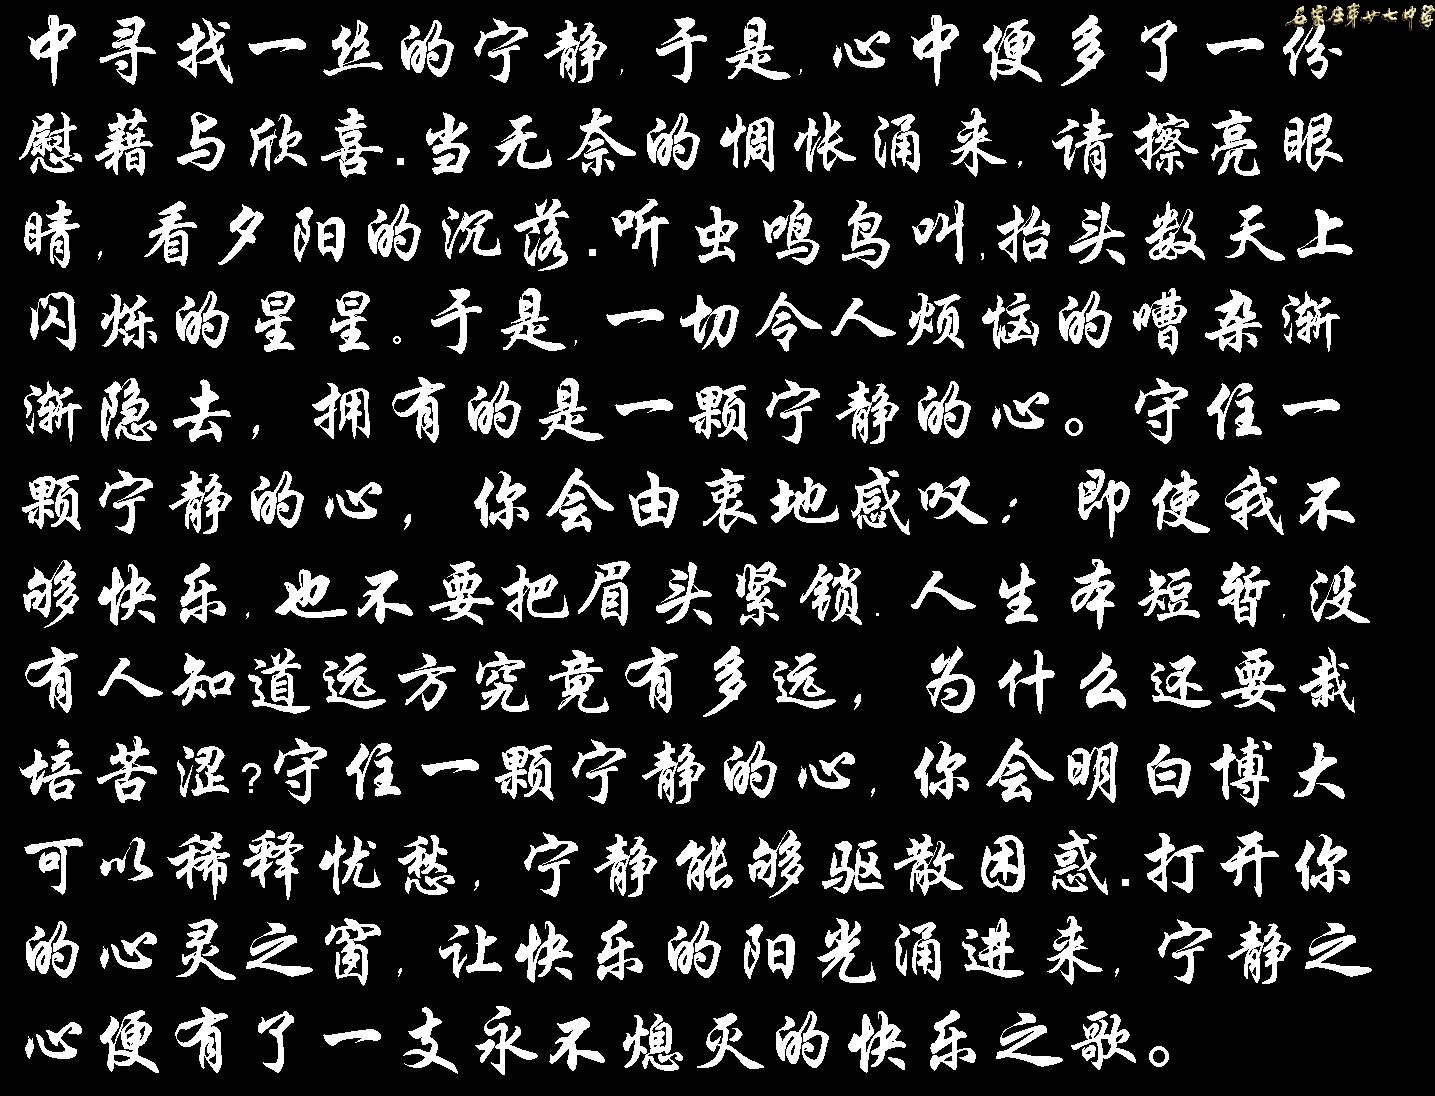 石家庄第廿七中学
中寻找一丝的宁静,于是,心中便多了一份
慰藉与欣喜.当无奈的惆怅涌来,请擦亮眼
睛,看夕阳的沉落.听虫鸣鸟叫,抬头数天上
闪烁的星星。于是,一切令人烦恼的嘈杂渐
渐隐去，拥有的是一颗宁静的心。守住一
颗宁静的心，你会由衷地感叹：即使我不
够快乐,也不要把眉头紧锁.人生本短暂,没
有人知道远方究竟有多远，为什么还要栽
培苦涩?守住一颗宁静的心,你会明白博大
可以稀释忧愁,宁静能够驱散困惑.打开你
的心灵之窗,让快乐的阳光涌进来,宁静之
心便有了一支永不熄灭的快乐之歌。